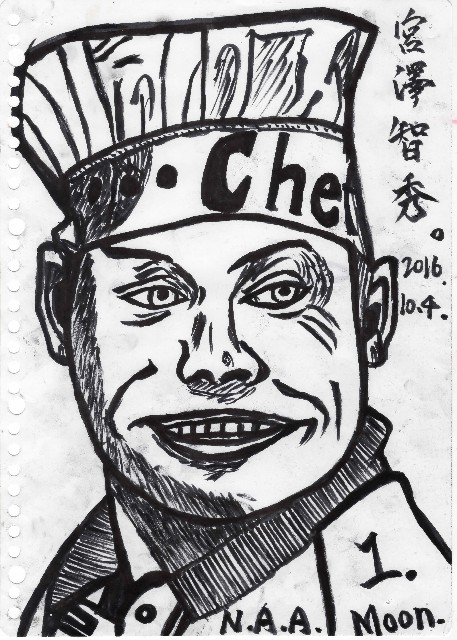 Chef
宮
澤
智
秀
。
2016.
10.4.
1.
N.A.A. Moon.